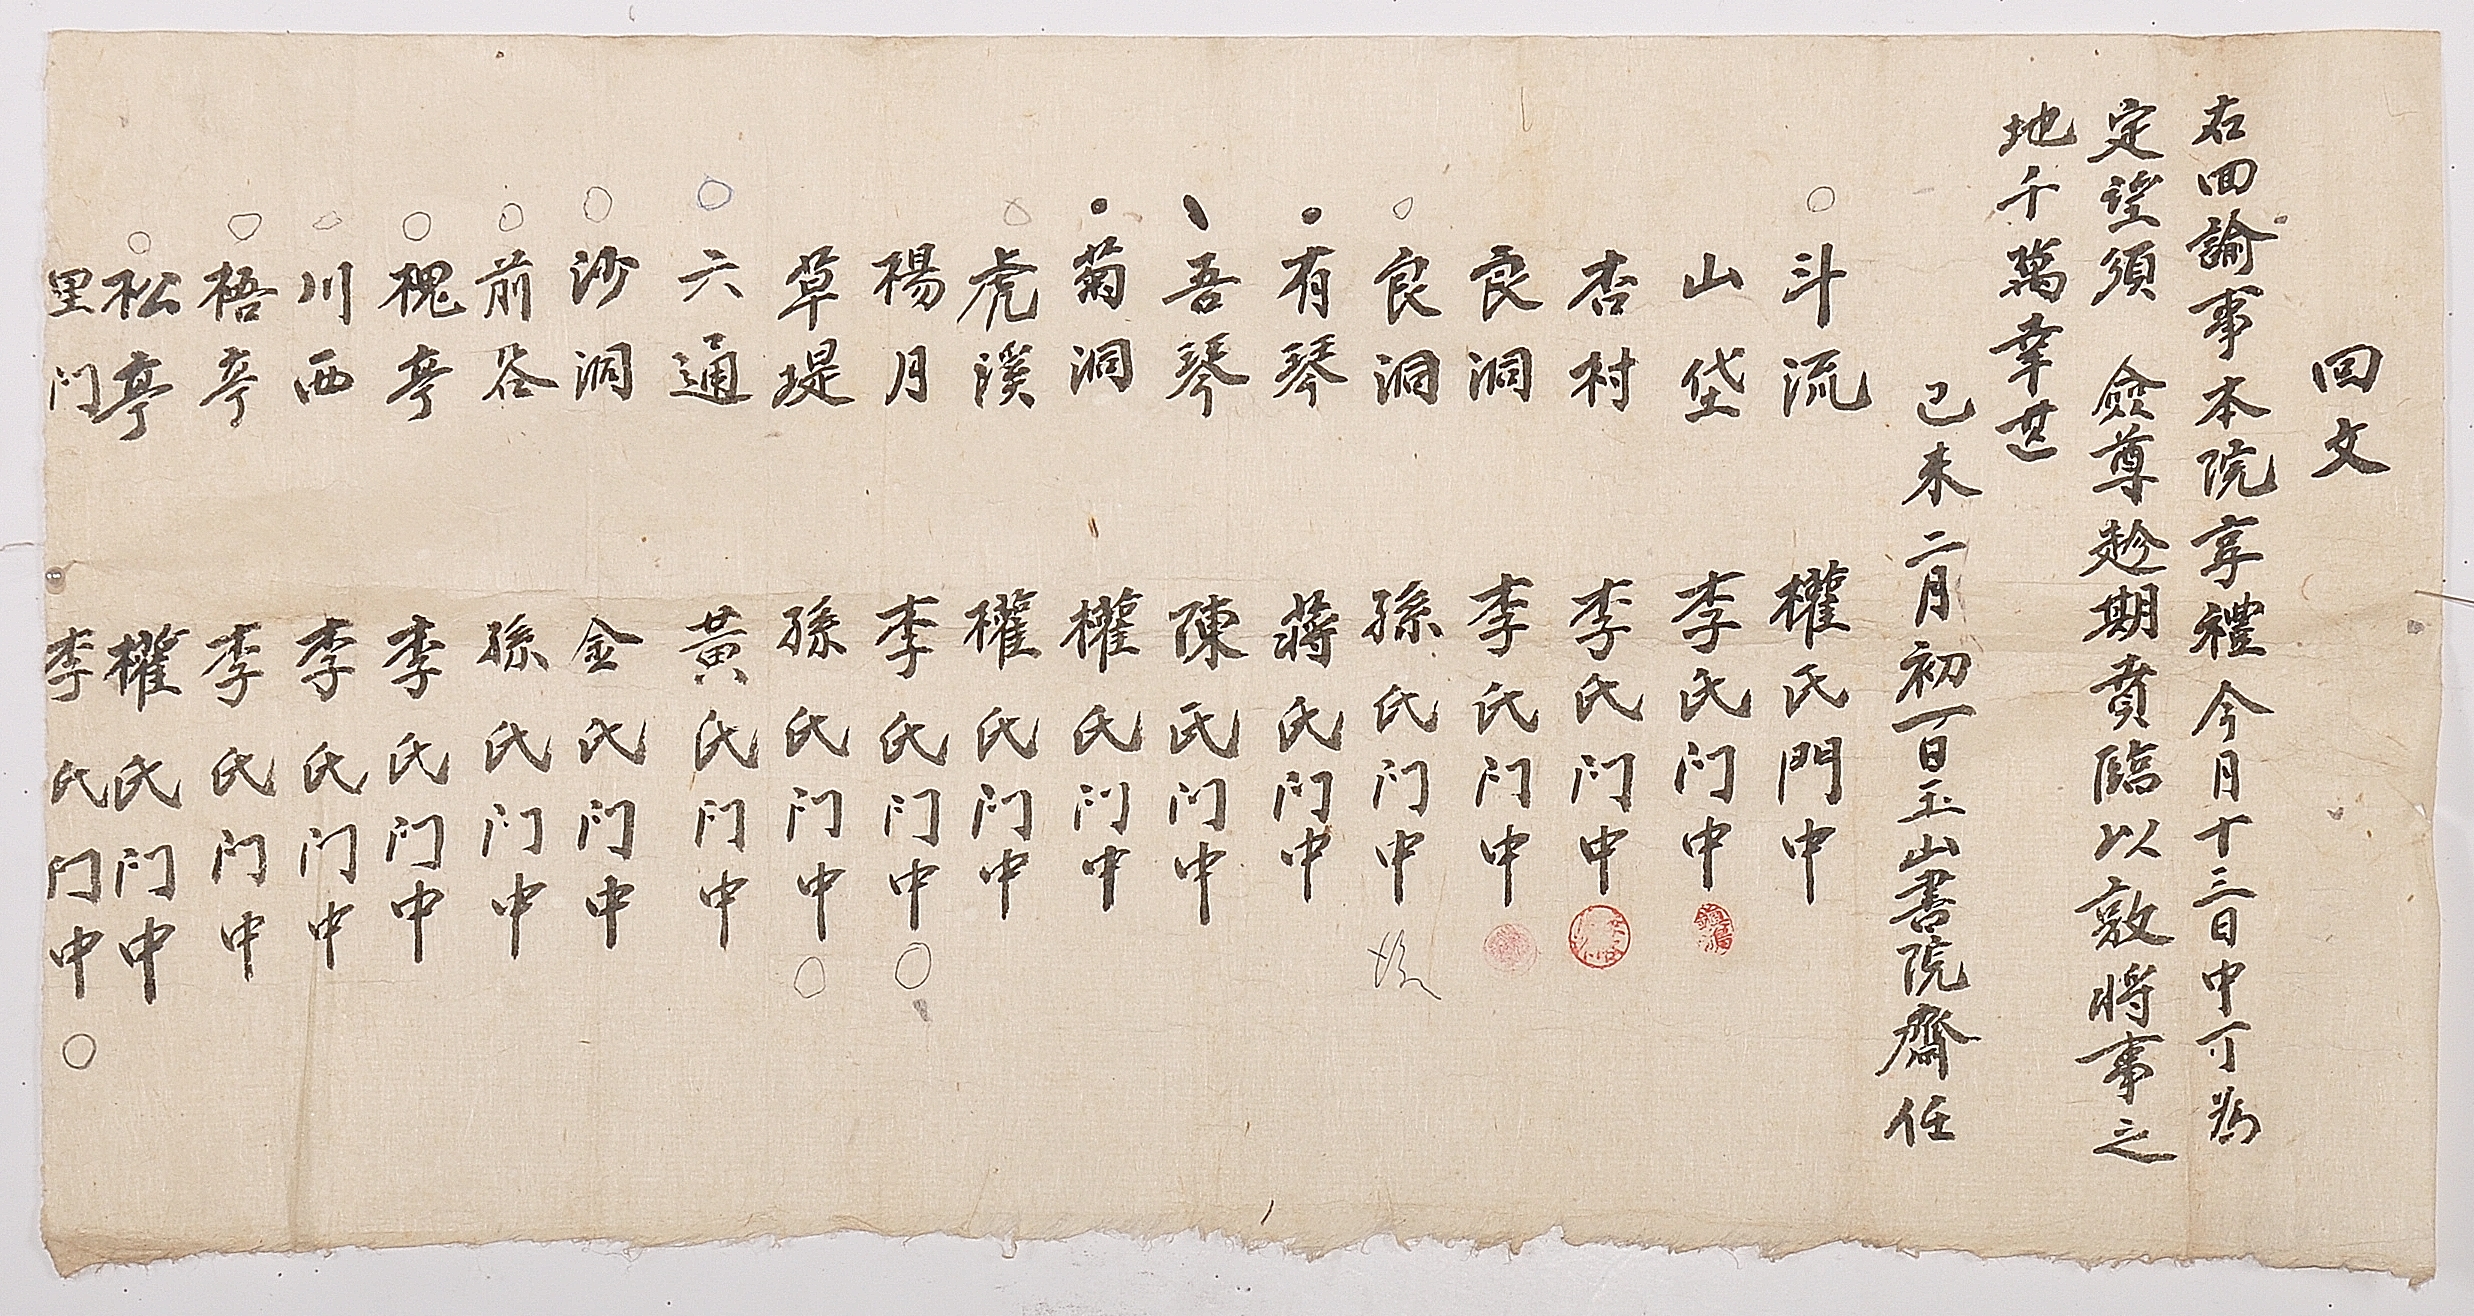 回文
右回諭事本院享禮今月十三日中丁為
定望須 僉尊趁期賁臨以敦將事之
地千萬幸甚
己未二月初一日玉山書院齋任
斗流 權氏門中
山垈 李氏门中
杏村 李氏门中
良洞 李氏门中
良洞 孫氏门中
有琴 蔣氏门中
吾琴 陳氏门中
菊洞 權氏门中
虎溪 權氏门中
楊月 李氏门中
草堤 孫氏门中
六通 黃氏门中
沙洞 金氏门中
前谷 孫氏门中
槐亭 李氏门中
川西 李氏门中
梧亭 李氏门中
松亭 權氏门中
里门 李氏门中